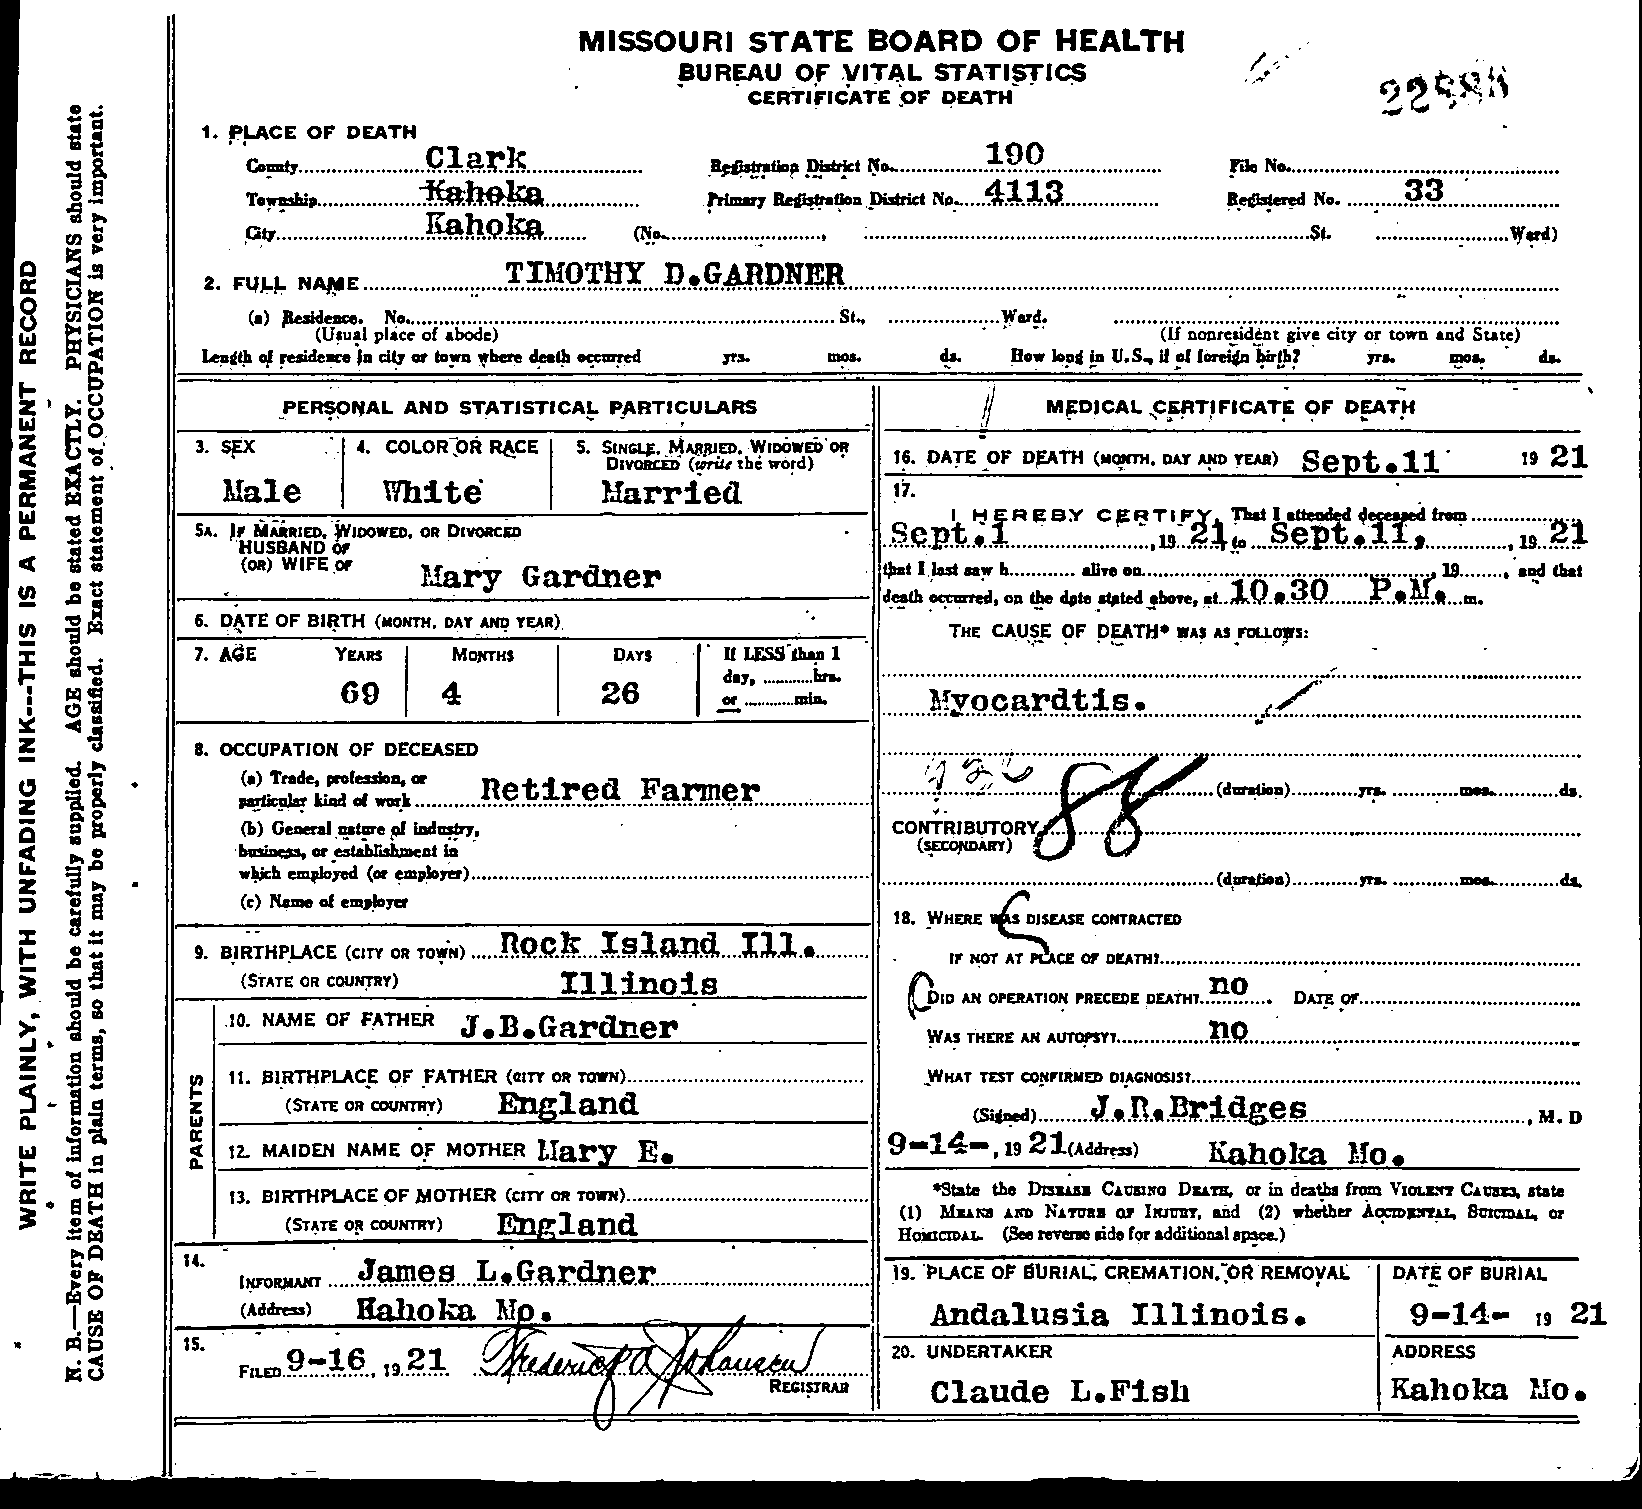 MISSOURI STATE BOARD OF HEALTH
BUREAU OF VITAL STATISTICS
CERTIFICATE OF DEATH
1. PLACE OF DEATH
County Clark Registration District No. 190 File No.
Township Kahoka Primary Registration District No. 4113 Registered No. 33
City Kahoka (No. , St. Ward)
2. FULL NAME TIMOTHY D.GARDNER
(a) Residence. No. St., Ward.
(Usual place of abode) (If nonresident give city or town and State)
Length of residence in city or town where death occurred yrs. mos. ds. How long in U.S., if of foreign birth? yrs. mos. ds.
PERSONAL AND STATISTICAL PARTICULARS
3. SEX 4. COLOR OR RACE 5. SINGLE, MARRIED, WIDOWED OR
DIVORCED (write the word)
Male White Married
5A. IF MARRIED, WIDOWED, OR DIVORCED
HUSBAND OF
(OR) WIFE OF Mary Gardner
6. DATE OF BIRTH (MONTH, DAY AND YEAR)
7. AGE YEARS MONTHS DAYS If LESS than 1
day, hrs.
69 4 26 or min.
8. OCCUPATION OF DECEASED
(a) Trade, profession, or
particular kind of work Retired Farmer
(b) General nature of industry,
business, or establishment in
which employed (or employer)
(c) Name of employer
9. BIRTHPLACE (CITY OR TOWN) Rock Island Ill.
(STATE OR COUNTRY) Illinois
PARENTS
10. NAME OF FATHER J.B.Gardner
11. BIRTHPLACE OF FATHER (CITY OR TOWN)
(STATE OR COUNTRY) England
12. MAIDEN NAME OF MOTHER Mary E.
13. BIRTHPLACE OF MOTHER (CITY OR TOWN)
(STATE OR COUNTRY) England
14.
INFORMANT James L.Gardner
(Address) Kahoka Mo.
15.
FILED 9-16, 19 21 Frederick A Johansen
REGISTRAR
MEDICAL CERTIFICATE OF DEATH
16. DATE OF DEATH (MONTH, DAY AND YEAR) Sept.11 19 21
17.
I HEREBY CERTIFY, That I attended deceased from
Sept.1, 19 21, to Sept.11, , 19 21
that I last saw h alive on , 19 , and that
death occurred, on the date stated above, at 10.30 P.M. m.
THE CAUSE OF DEATH* WAS AS FOLLOWS:
Myocardtis.
(duration) yrs. mos. ds.
88
CONTRIBUTORY
(SECONDARY)
(duration) yrs. mos. ds.
18. WHERE WAS DISEASE CONTRACTED
IF NOT AT PLACE OF DEATH?
DID AN OPERATION PRECEDE DEATH? no DATE OF
WAS THERE AN AUTOPSY? no
WHAT TEST CONFIRMED DIAGNOSIS?
(Signed) J.R.Bridges , M. D
9-14-, 19 21 (Address) Kahoka Mo.
*State the DISEASE CAUSING DEATH, or in deaths from VIOLENT CAUSES, state
(1) MEANS AND NATURE OF INJURY, and (2) whether ACCIDENTAL, SUICIDAL, or
HOMICIDAL. (See reverse side for additional space.)
19. PLACE OF BURIAL, CREMATION, OR REMOVAL DATE OF BURIAL
Andalusia Illinois. 9-14- 19 21
20. UNDERTAKER ADDRESS
Claude L.Fish Kahoka Mo.
WRITE PLAINLY, WITH UNFADING INK---THIS IS A PERMANENT RECORD
N. B.—Every item of information should be carefully supplied. AGE should be stated EXACTLY. PHYSICIANS should state
CAUSE OF DEATH in plain terms, so that it may be properly classified. Exact statement of OCCUPATION is very important.